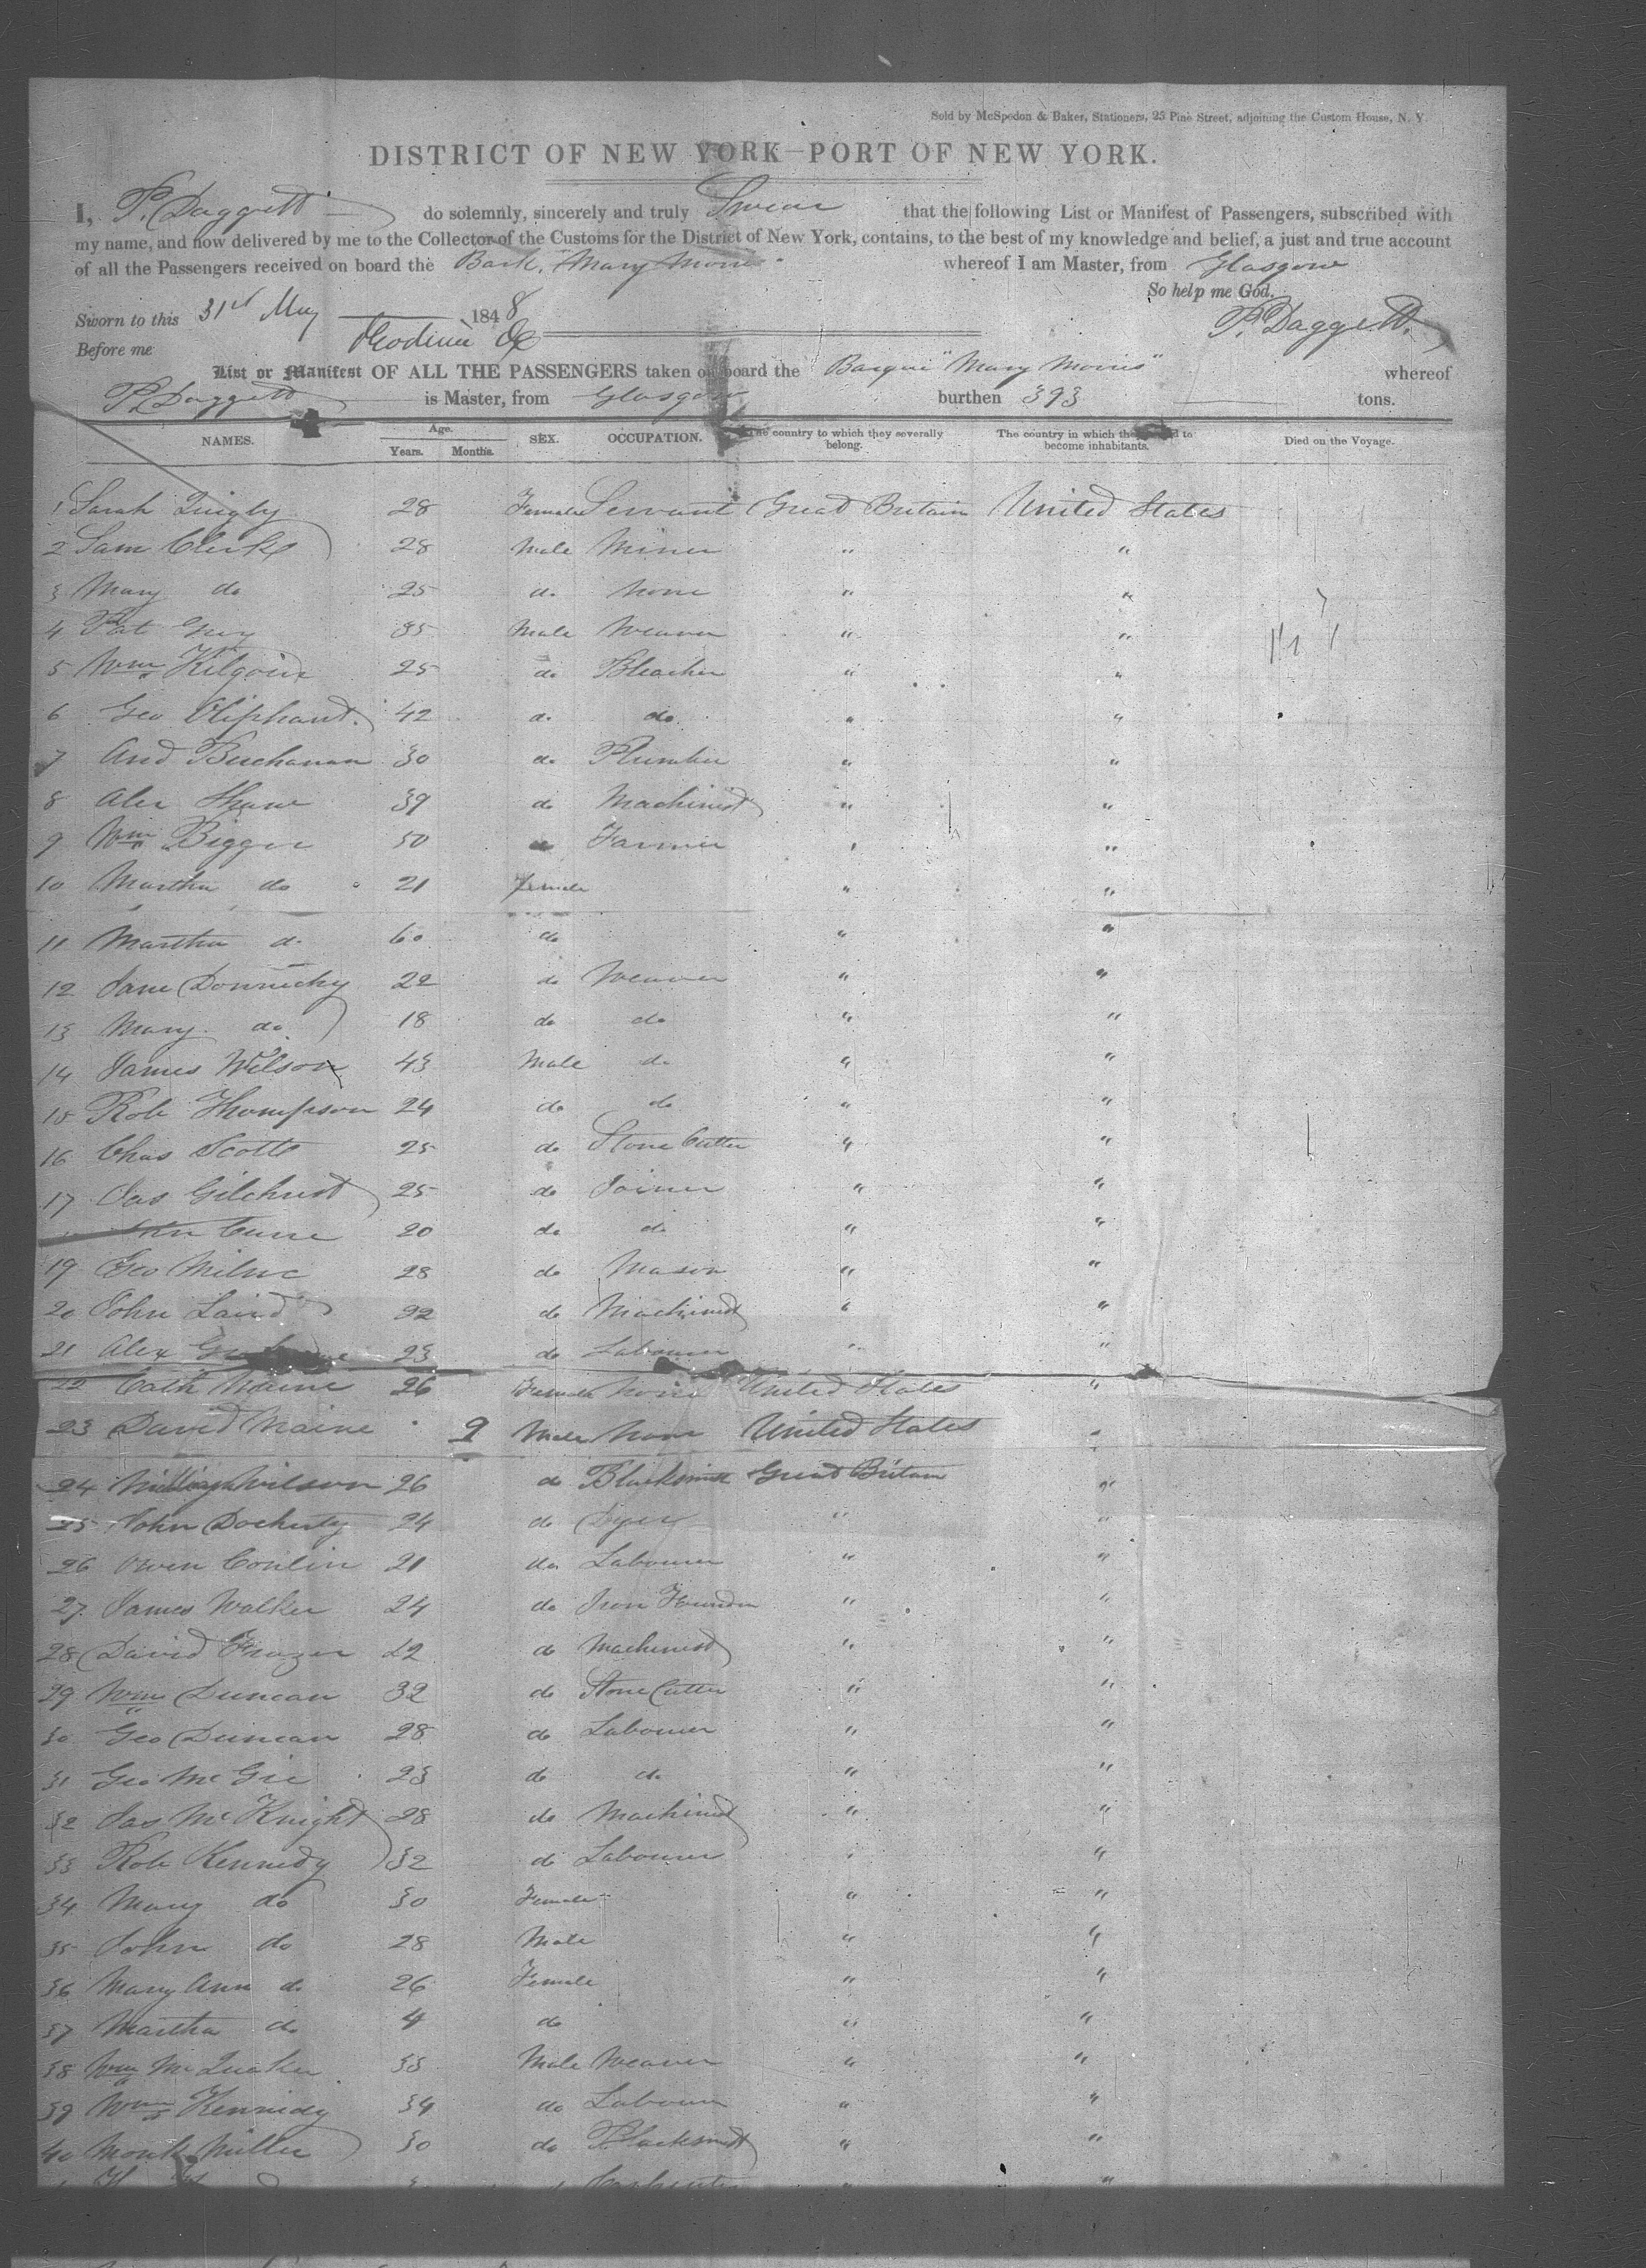 Sold by McSpedon & Baker, Stationers, 25 Pine Street, adjoining the Custom House, N. Y.
DISTRICT OF NEW YORK—PORT OF NEW YORK.
I, P. Daggett do solemnly, sincerely and truly Swear that the following List or Manifest of Passengers, subscribed with
my name, and now delivered by me to the Collector of the Customs for the District of New York, contains, to the best of my knowledge and belief, a just and true account
of all the Passengers received on board the Bark, Mary Morris whereof I am Master, from Glasgow
So help me God.
Sworn to this 31st May 1848
P. Daggett.
Before me
List or Manifest OF ALL THE PASSENGERS taken on board the Barque "Mary Morris" whereof
P. Daggett is Master, from Glasgow burthen 393 tons.
NAMES. Age. Years. Months. SEX. OCCUPATION. The country to which they severally belong. The country in which they to become inhabitants. Died on the Voyage.
1 Sarah Quigly 28 Female Servant Great Britain United States
2 Sam Clerke 28 Male Miner " "
3 Mary do 25 do none " "
4 Pat 35 Male Weaver " "
5 Wm 25 do Bleacher " "
6 Geo Oliphant. 42 do do " "
7 And Buchanan 30 do Plumber " "
8 Alex 39 do Machinist " "
9 Wm Bigger 50 do Farmer " "
10 Martha do 21 female " "
11 Martha do 60 do " "
12 Jane 22 do Weaver " "
13 Mary do 18 do do " "
14 James Wilson 43 Male do " "
15 Rob Thompson 24 do do " "
16 Chas Scott 25 do Stone Cutter " "
17 Jas Gilchrist 25 do Joiner " "
20 do do " "
19 Geo Milne 28 do Mason " "
20 John Laird do Machinist " "
21 Alex 23 do Labourer " "
22 Cath Naine 26 Female None United States "
23 David Naine 9 Male None United States "
24 William Wilson 26 do Blacksmith Great Britain "
25 John Docherty 24 do Dyer " "
26 Owen Conlin 21 do Labourer " "
27 James Walker 24 do Iron Founder " "
28 David Frazer 22 do Machinist " "
29 Wm Duncan 32 do Stone Cutter " "
30 Geo Duncan 28 do Labourer " "
31 Geo McGie 23 do do " "
32 Jas McKnight 28 do Machinist " "
33 Rob Kennedy 32 do Labourer " "
34 Mary do 30 Female " "
35 John do 28 Male " "
36 Mary Ann do 26 Female " "
37 Martha do 4 do " "
38 Wm McQuaker 33 Male Weaver " "
39 Wm Kennedy 34 do Labourer " "
40 Miller 30 do Blacksmith " "